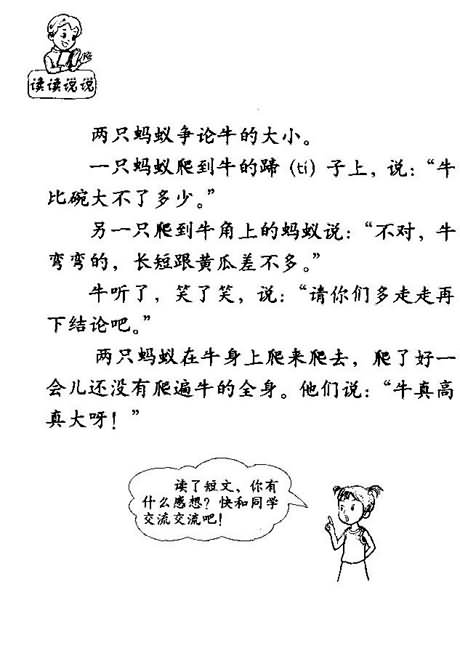 读读说说
两只蚂蚁争论牛的大小。
一只蚂蚁爬到牛的蹄（tí）子上，说：“牛
比碗大不了多少。”
另一只爬到牛角上的蚂蚁说：“不对，牛
弯弯的，长短跟黄瓜差不多。”
牛听了，笑了笑，说：“请你们多走走再
下结论吧。”
两只蚂蚁在牛身上爬来爬去，爬了好一
会儿还没有爬遍牛的全身。他们说：“牛真高
真大呀！”
读了短文，你有
什么感想？快和同学
交流交流吧！